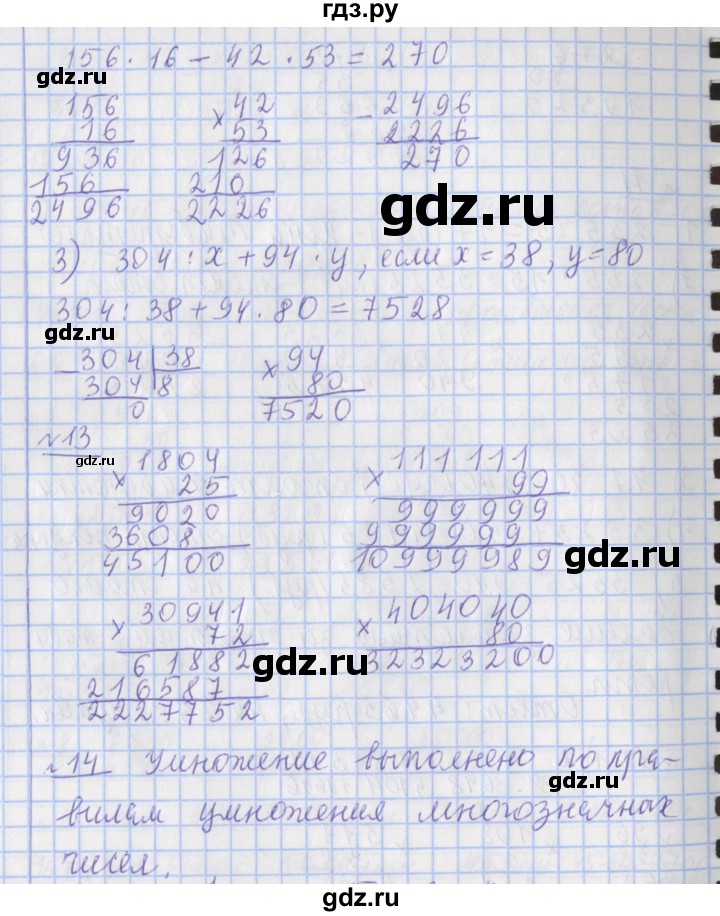 гдз.ру
156 · 16 - 42 · 53 = 270
gdz.ru
156
16
936
156
2496
× 42
53
126
210
2226
- 2496
2226
270
gdz.ru
3) 304 : x + 94 · y, если x = 38, y = 80
304 : 38 + 94 · 80 = 7528
gdz.ru
- 304 | 38
304 8
0
× 94
80
7520
№13
gdz.ru
× 1804
25
9020
3608
45100
× 111 111
99
999999
999999
10999989
gdz.ru
× 30941
72
61882
216587
2227752
gdz.ru
× 404040
80
32323200
№14 Умножение выполнено по пра-
gdz.ru
вилам умножения многозначных
чисел.
gdz.ru
gdz.ru
gdz.ru